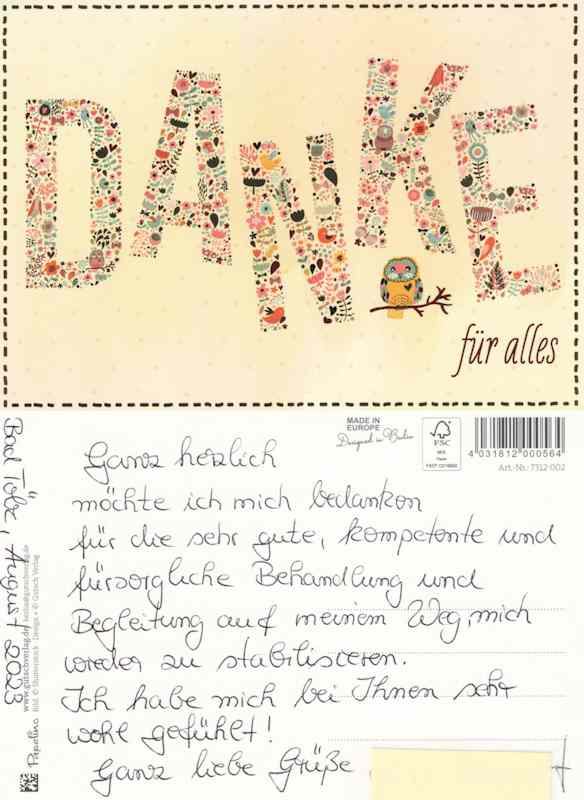 DANKE
für alles
MADE IN
EUROPE
Designed in Berlin
FSC
MIX
4 031812 000564
Art.-Nr.: 7312-002
Bad Tölz, August 2023
www.gutschverlag.de
Bild: © Shutterstock Design + © Gutsch Verlag
Papelino
Ganz herzlich
möchte ich mich bedanken
für die sehr gute, kompetente und
fürsorgliche Behandlung und
Begleitung auf meinem Weg, mich
wieder zu stabilisieren.
Ich habe mich bei Ihnen sehr
wohl gefühlt!
Ganz liebe Grüße